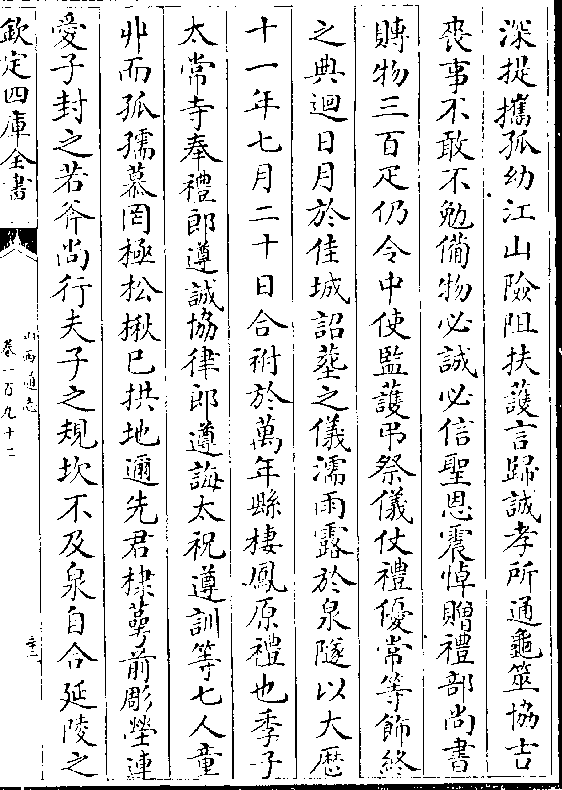 深提攜孤幼江山險阻扶護言歸誠孝所通龜筮協吉
喪事不敢不勉備物必誠必信聖恩震悼贈禮部尚書
賻物三百疋仍令中使監護弔祭儀仗禮優常等飾終
之典迴日月於佳城詔塟之儀濡雨露於泉隧以大厯
十一年七月二十日合祔於萬年縣棲鳳原禮也季子
太常寺奉禮郎遵誠協律郎遵誨太祝遵訓等七人童
丱而孤孺慕罔極松楸已拱地邇先君棣蕚前彫塋連
愛子封之若斧尚行夫子之規坎不及泉自合延陵之
欽定四庫全書
山西通志
卷一百九十二